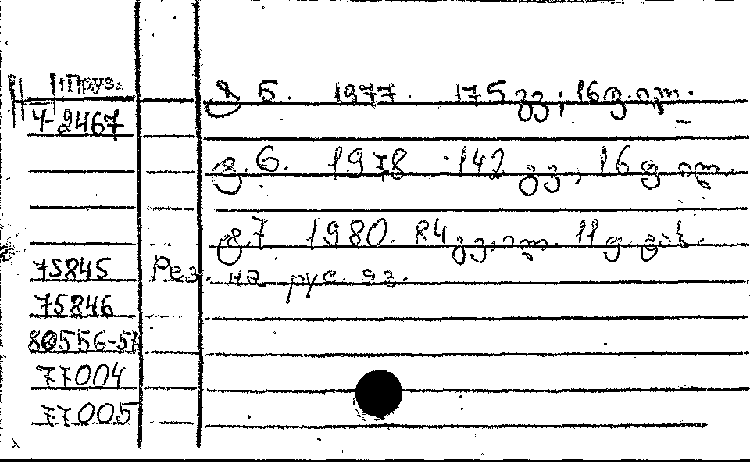 1Груз.
Ч-2467
ტ 5. 1977. 175 გვ; 16 ფ. ილ.
ტ. 6. 1978 142 გვ, 16 ფ ილ.
ტ. 7 1980. 84 გვ, ილ. 11 ფ.
75845 Рез. на рус. яз.
75846
80556-57
77004
77005